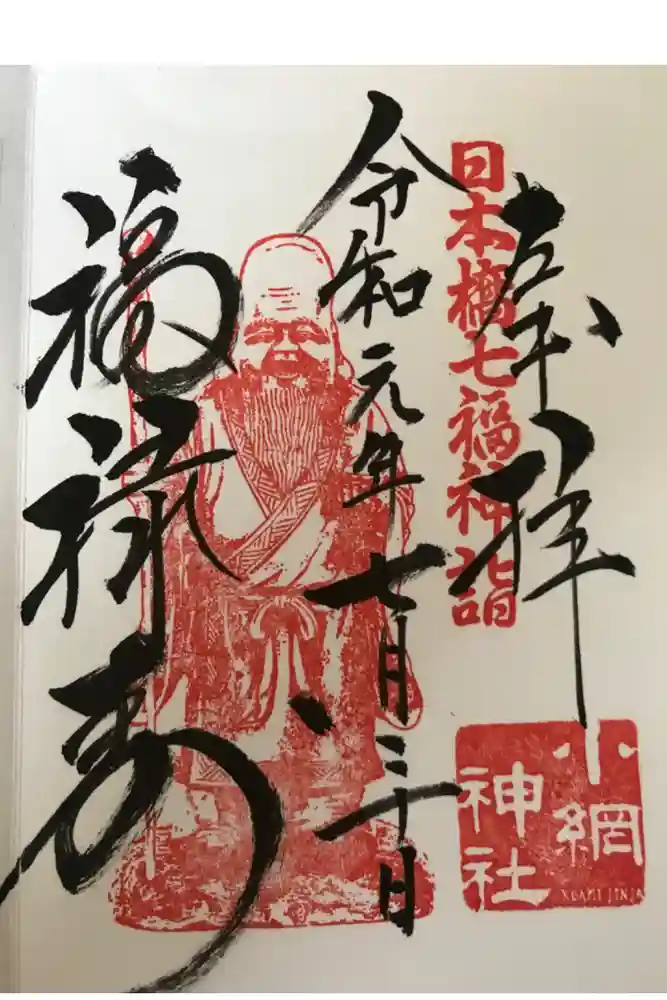 奉拝
日本橋七福神詣
小網
神社
KOAMI JINJA
令和元年七月三十日
福禄寿